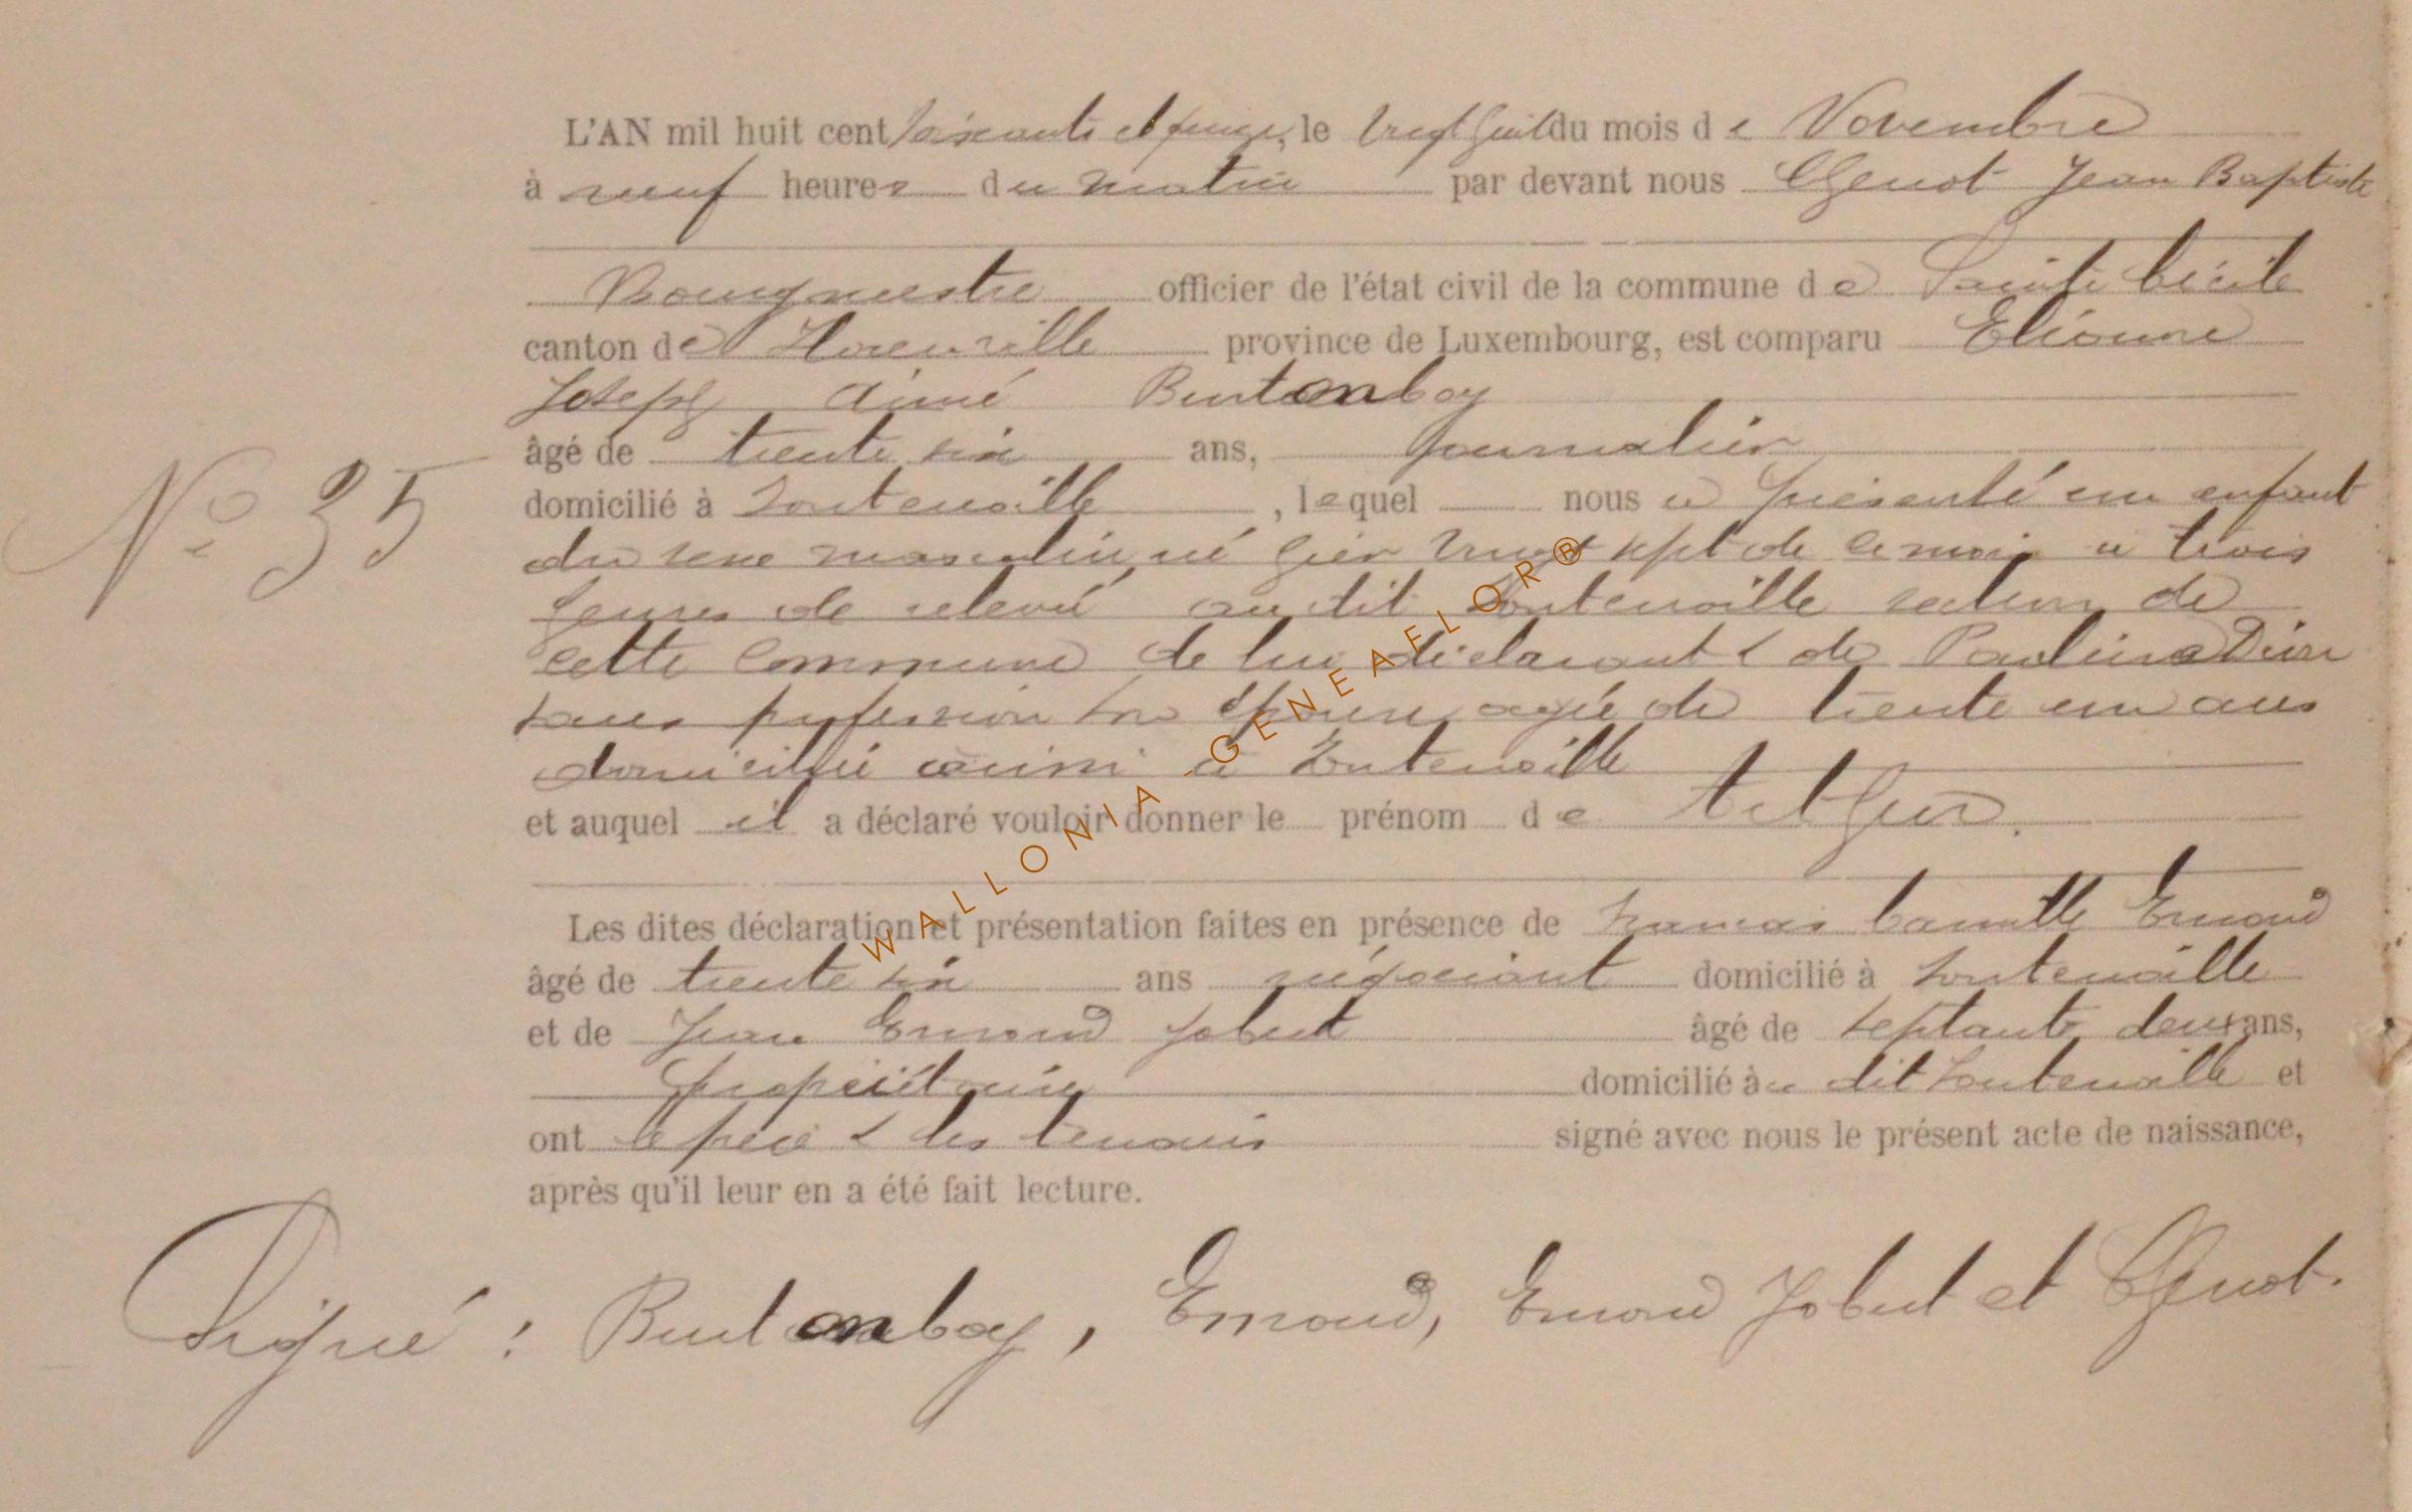 L'AN mil huit cent soixante et quinze, le vingt huit du mois de Novembre
à neuf heures du matin par devant nous Thenot Jean Baptiste
Bourgmestre officier de l'état civil de la commune de Sainte Cécile
canton de Florenville province de Luxembourg, est comparu
Joseph Aimé Burtonboy
âgé de trente six ans, journalier
N° 35
domicilié à Fontenoille, lequel nous a présenté un enfant
du sexe masculin, né hier vingt sept de ce mois à trois
heures de relevé au dit Fontenoille section de
cette commune de lui déclarant & de Pauline
sans profession son épouse, agée de trente un ans
domicilié aussi à Fontenoille
et auquel il a déclaré vouloir donner le prénom de Arthur.
Les dites déclaration et présentation faites en présence de Camille Emond
âgé de trente six ans négociant domicilié à Fontenoille
et de Jean Emond Jobert âgé de septante deux ans,
propriétaire domicilié au dit Fontenoille et
ont le père & les témoins signé avec nous le présent acte de naissance,
après qu'il leur en a été fait lecture.
Signé : Burtonboy, Emond, Emond Jobert et Thenot.
WALLONIA - GENEAFLOR®